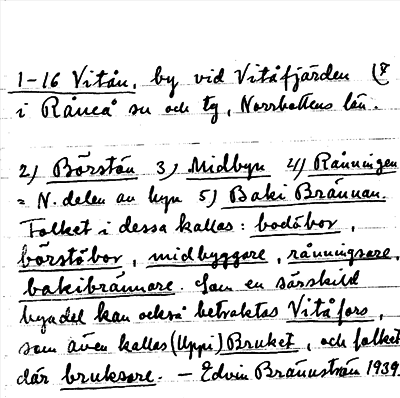 1-16 Vitån, by vid Vitåfjärden
i Råneå sn och tg, Norrbottens län.
2) Börstön 3) Midbyn 4) Rånningen
= N. delen av byn 5) Baki Brännan.
Folket i dessa kallas: bodöbor,
börstöbor, midbyggare, rånningsare,
bakibrännare. Som en särskild
byadel kan också betraktas Vitåfors,
som även kallas (Uppi) Bruket, och folket
där bruksare. – Edvin Brännström 1939